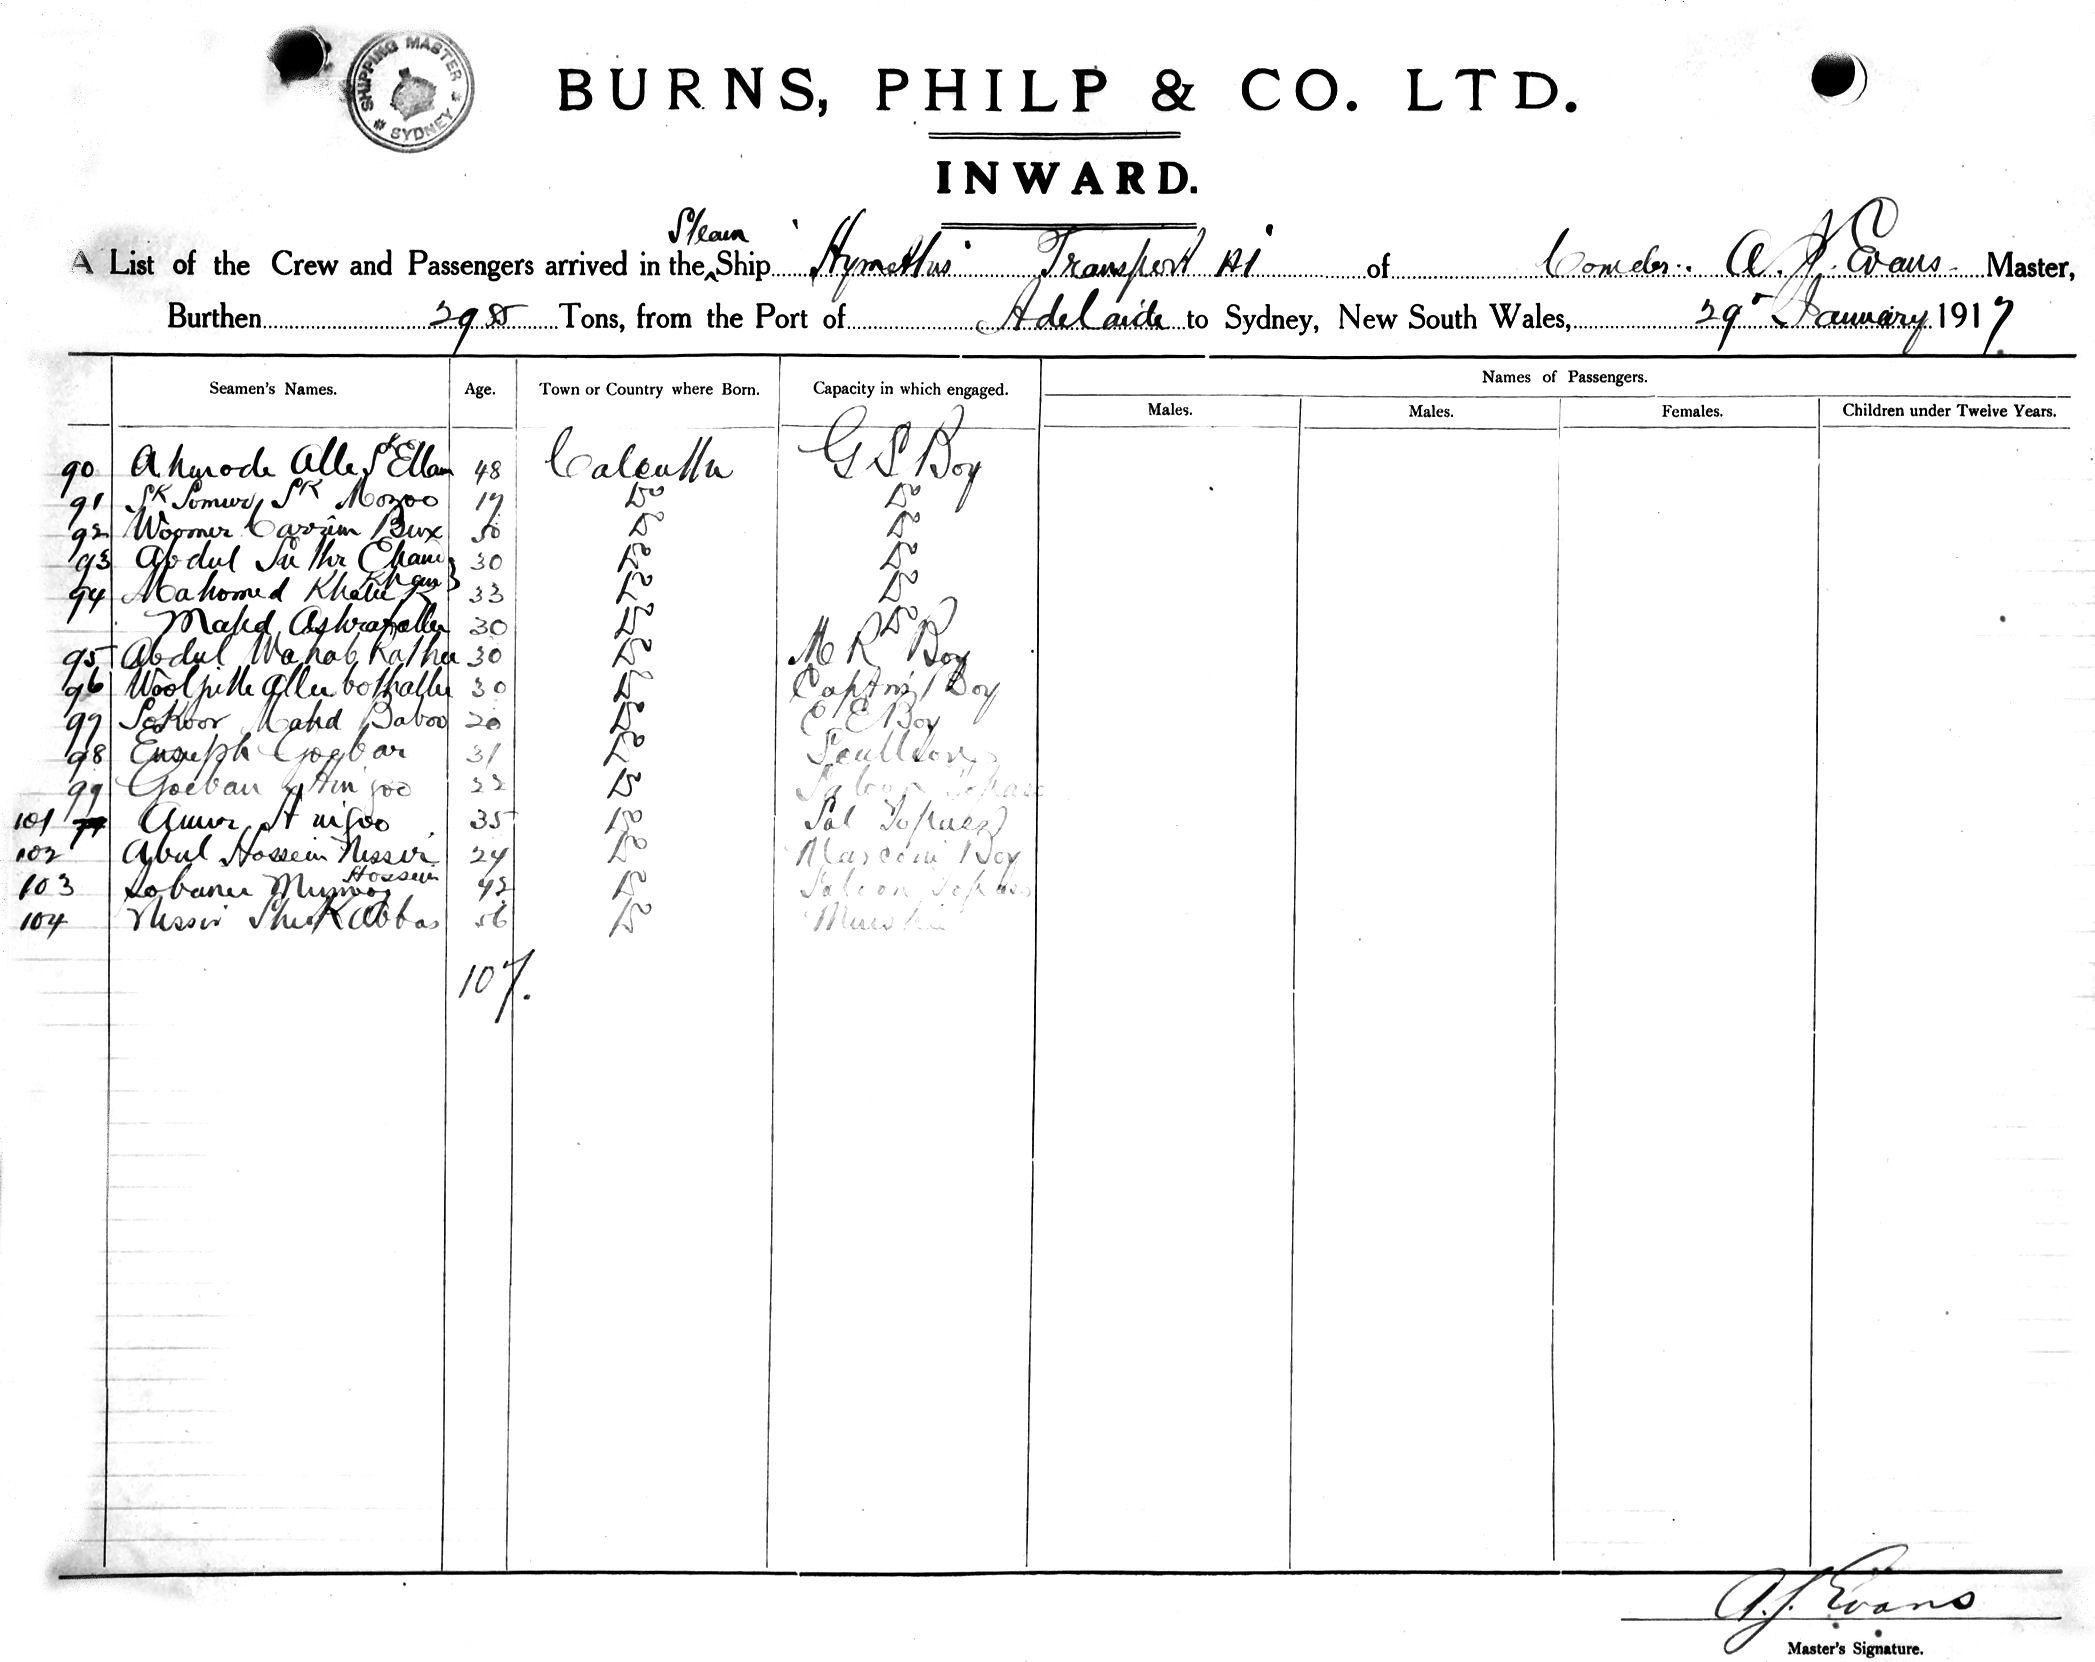 SHIPPING MASTER
SYDNEY
BURNS, PHILP & CO. LTD.
INWARD.
Steam
A List of the Crew and Passengers arrived in the Ship Hymettus Transport A1 of Comdr. A. J. Evans Master,
Burthen Tons, from the Port of Adelaide to Sydney, New South Wales, 29 January 1917
Names of Passengers.
Seamen's Names. Age. Town or Country where Born. Capacity in which engaged.
Males. Males. Females. Children under Twelve Years.
90 Ahmode Alle Sk Ellam 48 Calcutta G S Boy
91 Sk Sk Mozoo 19 Do Do
92 Woomer Carrim Bux 50 Do Do
93 Abdul 30 Do Do
94 Mahomed Khan 33 Do Do
Mahd Ashrafalle 30 Do Do
95 Abdul Wahab 30 Do M R Boy
96 30 Do Captn's Boy
97 Mahd Baboo 20 Do Boy
98 Goolbar 31 Do Scullion
99 22 Do Saloon Topass
101 35 Do Sal Topass
102 Abul Hossein Nissir 24 Do Marconi Boy
Hossein
103 42 Do Saloon Topass
104 Nissir Abbas 56 Do
107.
A. J. Evans
Master's Signature.